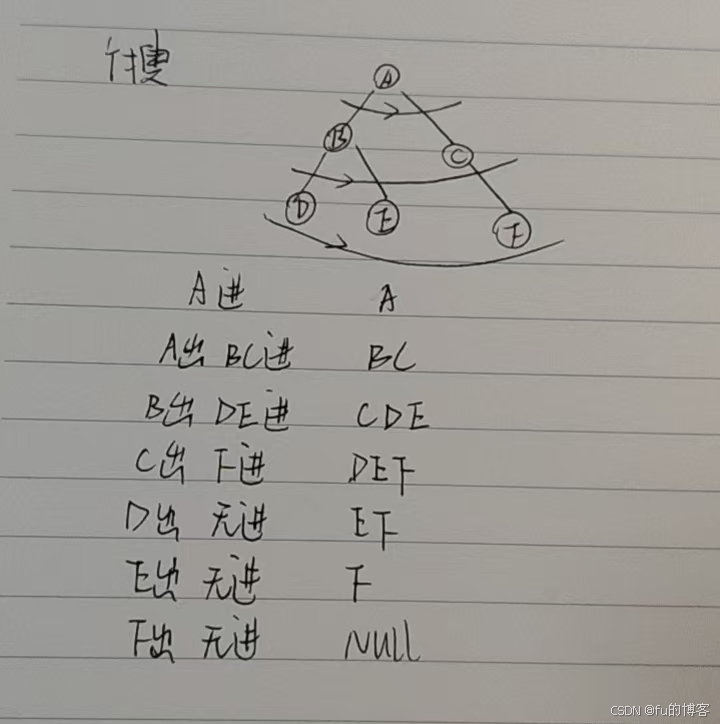 广搜
A
B C
D E F
A进 A
A出 BC进 BC
B出 DE进 CDE
C出 F进 DEF
D出 无进 EF
E出 无进 F
F出 无进 NULL
CSDN @fu的博客